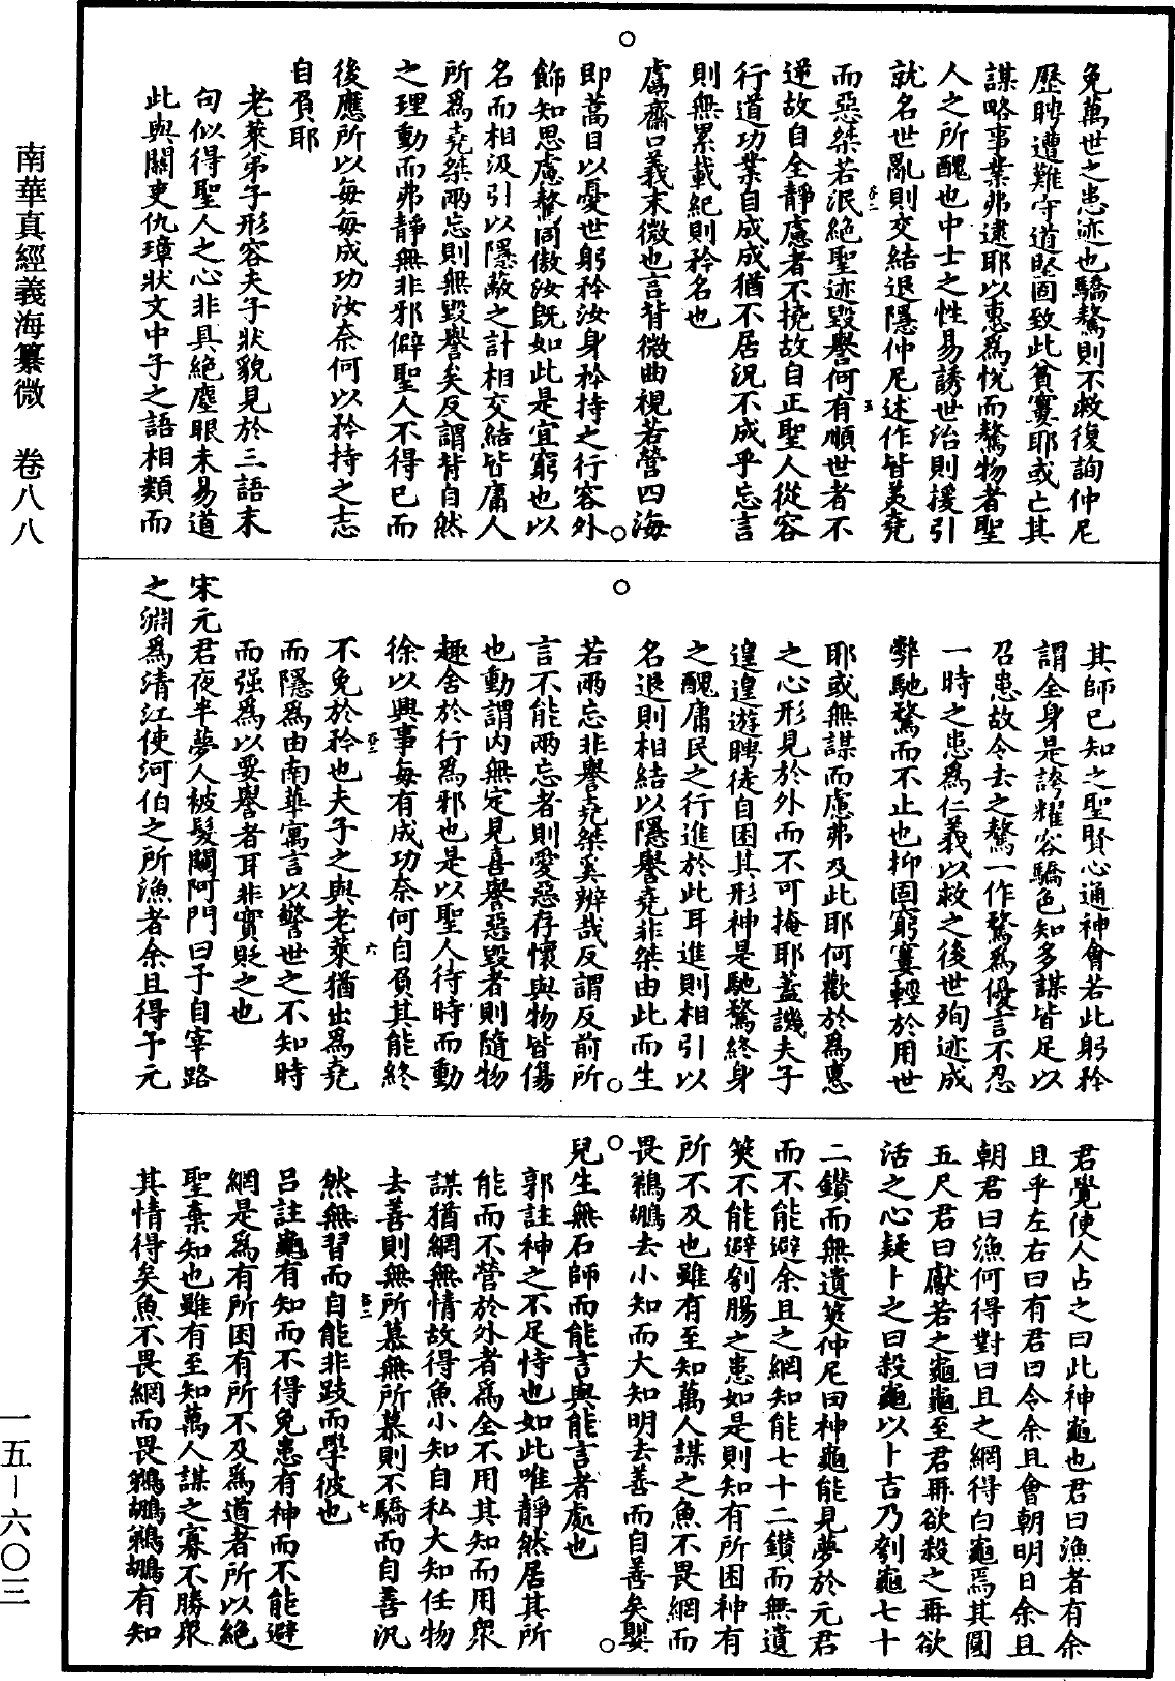 免萬世之患迹也驕驁則不救復詢仲尼
歷聘遭難守道堅固致此貧窶耶或亡其
謀略事業弗逮耶以惠為悅而驁物者聖
人之所醜也中士之性易誘世治則援引
就名世亂則交結退隱仲尼述作皆美堯
而惡桀若泯絕聖迹毀譽何有順世者不
逆故自全靜慮者不撓故自正聖人從容
行道功業自成成猶不居況不成乎忘言
則無累載紀則矜名也
鬳齋口義末微也言背微曲視若營四海
即蒿目以憂世躬矜汝身矜持之行容外
飾知思慮驁同傲汝既如此是宜窮也以
名而相汲引以隱蔽之計相交結皆庸人
所為堯桀兩忘則無毀譽矣反謂背自然
之理動而弗靜無非邪僻聖人不得已而
後應所以每每成功汝奈何以矜持之志
自負耶
老萊弟子形容夫子狀貌見於三語末
句似得聖人之心非具絕塵眼未易道
此與關吏仇璋狀文中子之語相類而
其師已知之聖賢心通神會若此躬矜
謂全身是誇耀容驕色知多謀皆足以
召患故令去之驁一作騖為優言不忍
一時之患為仁義以救之後世殉迹成
弊馳騖而不止也抑固窮窶輕於用世
耶或無謀而慮弗及此耶何歡於為惠
之心形見於外而不可掩耶蓋譏夫子
遑遑遊聘徒自困其形神是馳騖終身
之醜庸民之行進於此耳進則相引以
名退則相結以隱譽堯非桀由此而生
若兩忘非譽堯桀奚辨哉反謂反前所
言不能兩忘者則愛惡存懷與物皆傷
也動謂內無定見喜譽惡毀者則隨物
趣舍於行為邪也是以聖人待時而動
徐以興事每有成功奈何自負其能終
不免於矜也夫子之與老萊猶出為堯
而隱為由南華寓言以警世之不知時
而强為以要譽者耳非實貶之也
宋元君夜半夢人被髮闚阿門曰予自宰路
之淵為清江使河伯之所漁者余且得予元
君覺使人占之曰此神龜也君曰漁者有余
且乎左右曰有君曰令余且會朝明日余且
朝君曰漁何得對曰且之網得白龜焉其圓
五尺君曰獻若之龜龜至君再欲殺之再欲
活之心疑卜之曰殺龜以卜吉乃刳龜七十
二鑽而無遺筴仲尼曰神龜能見夢於元君
而不能避余且之網知能七十二鑽而無遺
筴不能避刳腸之患如是則知有所困神有
所不及也雖有至知萬人謀之魚不畏網而
畏鵜鶘去小知而大知明去善而自善矣嬰
兒生無石師而能言與能言者處也
郭註神之不足恃也如此唯靜然居其所
能而不營於外者為全不用其知而用眾
謀猶網無情故得魚小知自私大知任物
去善則無所慕無所慕則不驕而自善汎
然無習而自能非跂而學彼也
呂註龜有知而不得免患有神而不能避
網是為有所困有所不及為道者所以絕
聖棄知也雖有至知萬人謀之寡不勝眾
其情得矣魚不畏網而畏鵜鶘鵜鶘有知
南華真經義海纂微　卷八八
一五－六〇三